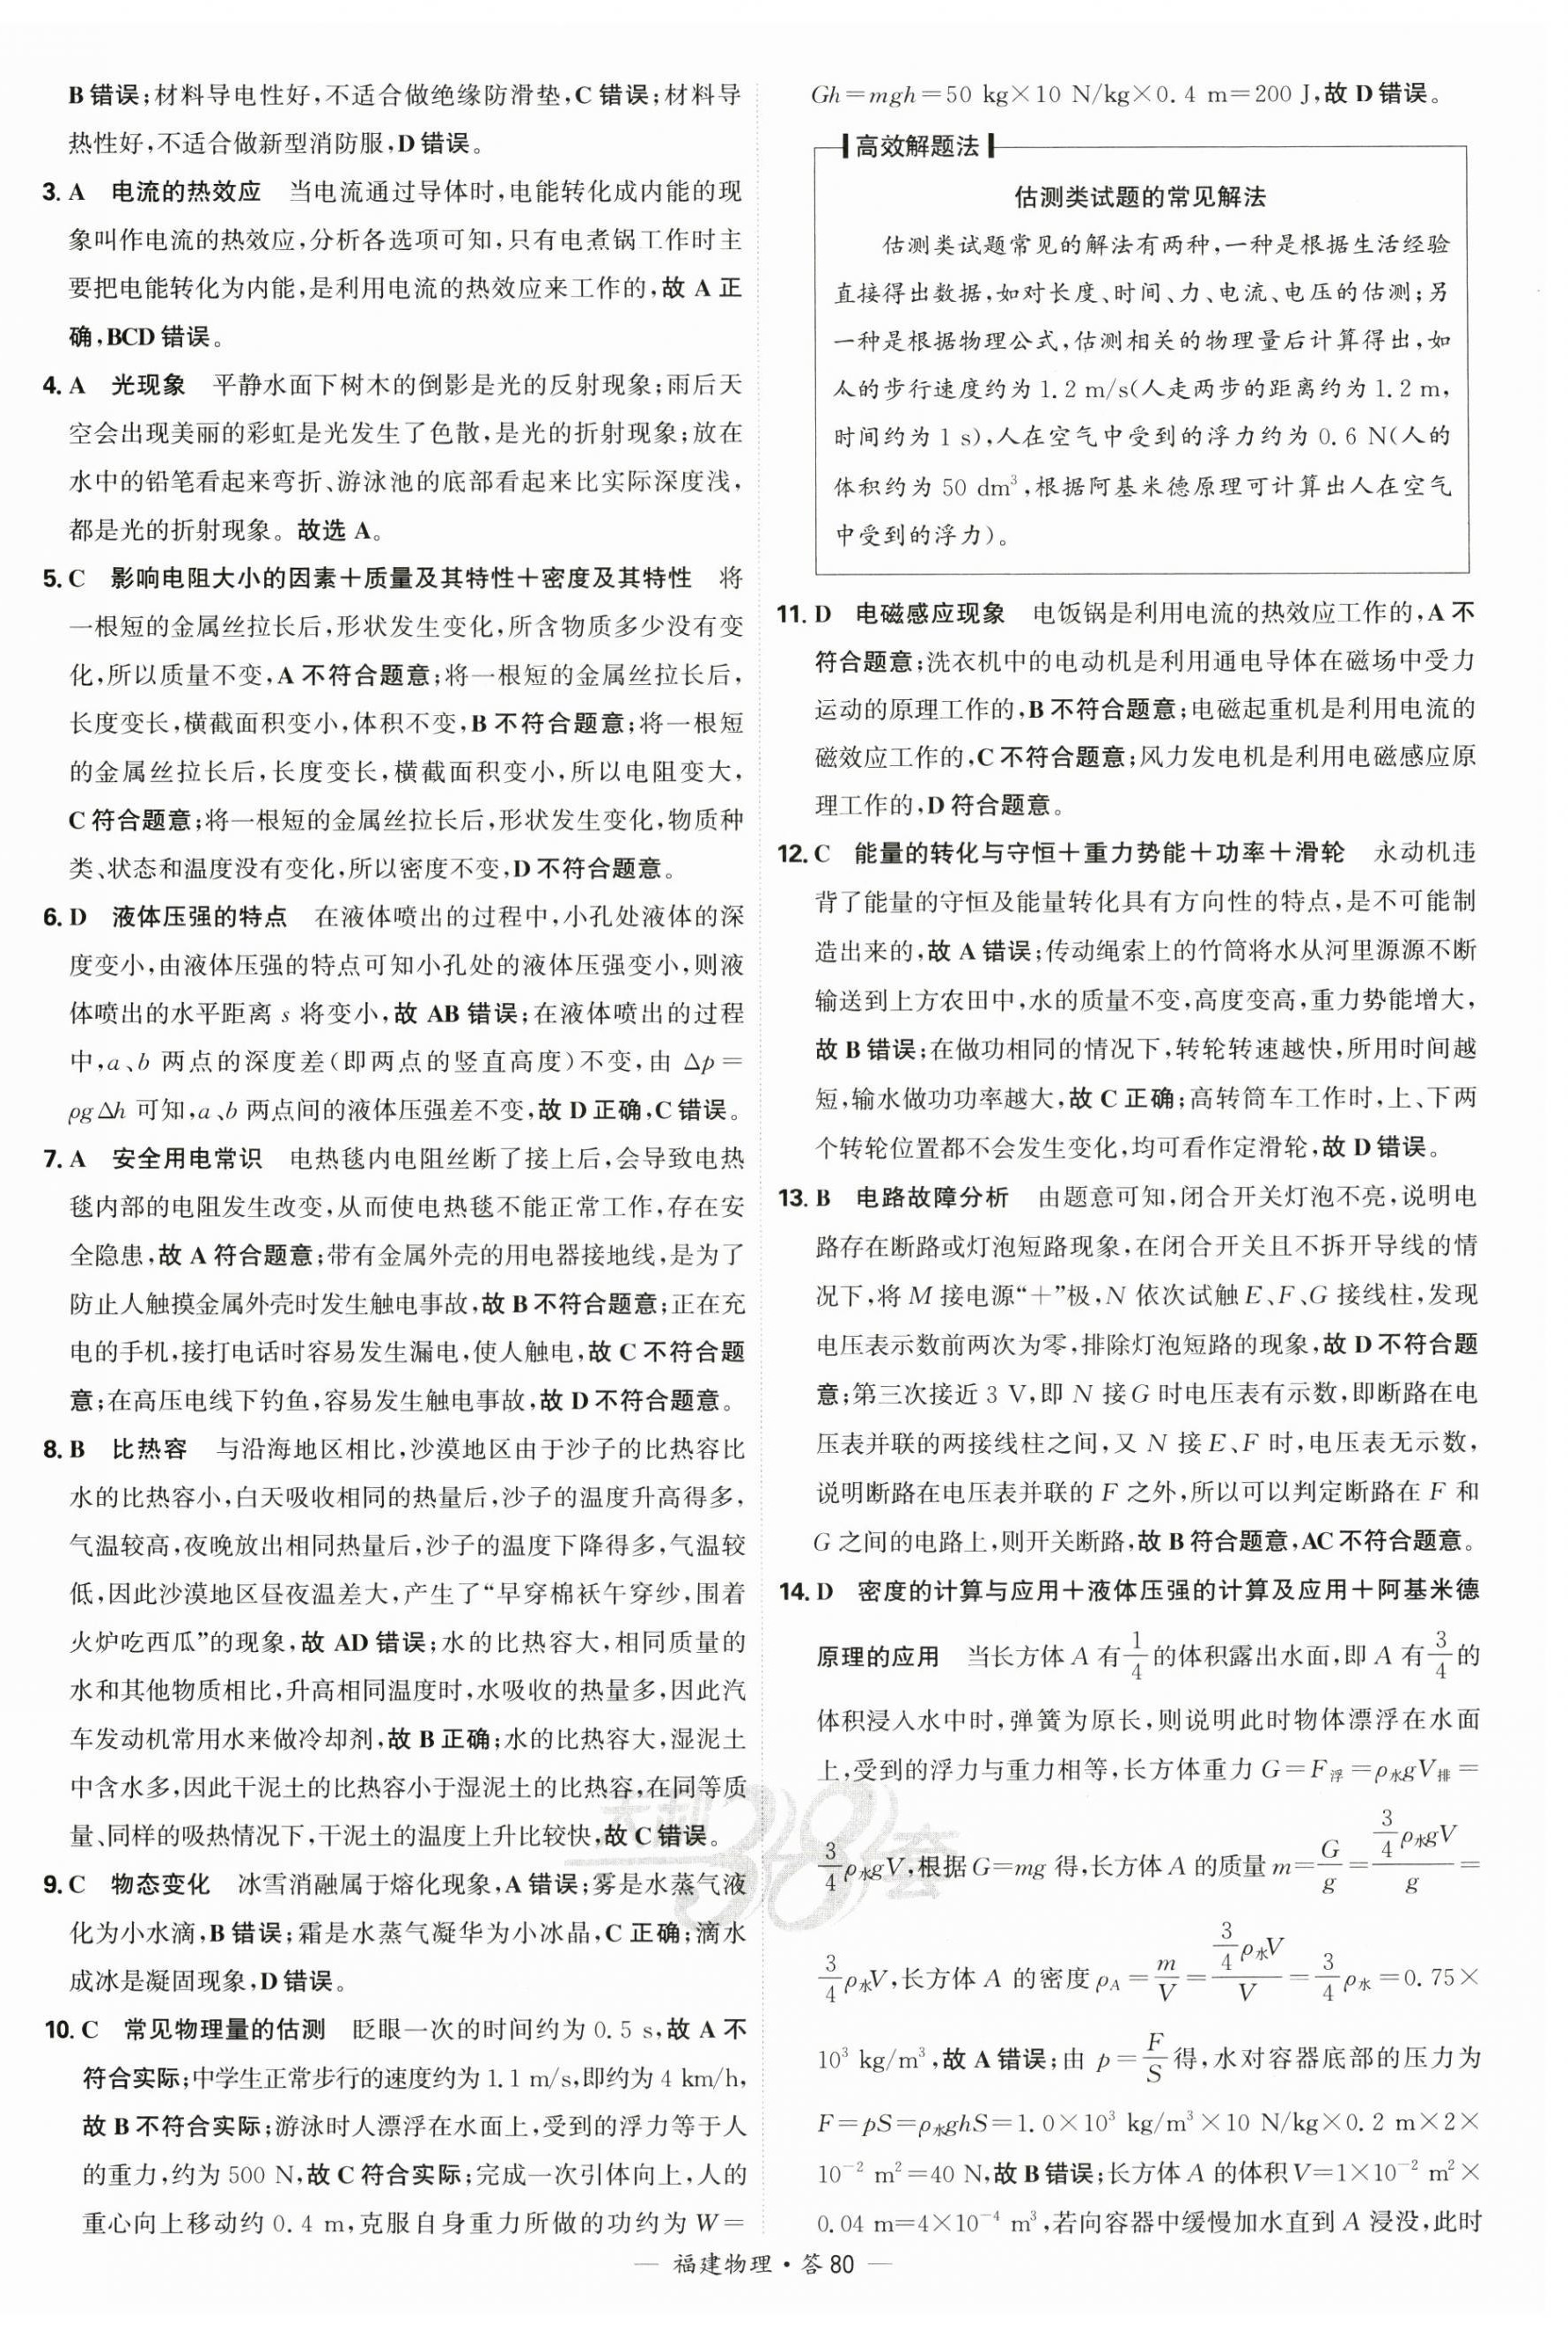 B错误;材料导电性好,不适合做绝缘防滑垫,C错误;材料导
热性好,不适合做新型消防服,D错误。
3. A 电流的热效应 当电流通过导体时,电能转化成内能的现
象叫作电流的热效应,分析各选项可知,只有电煮锅工作时主
要把电能转化为内能,是利用电流的热效应来工作的,故A正
确,BCD错误。
4. A 光现象 平静水面下树木的倒影是光的反射现象;雨后天
空会出现美丽的彩虹是光发生了色散,是光的折射现象;放在
水中的铅笔看起来弯折、游泳池的底部看起来比实际深度浅,
都是光的折射现象。故选A。
5. C 影响电阻大小的因素+质量及其特性+密度及其特性 将
一根短的金属丝拉长后,形状发生变化,所含物质多少没有变
化,所以质量不变,A不符合题意;将一根短的金属丝拉长后,
长度变长,横截面积变小,体积不变,B不符合题意;将一根短
的金属丝拉长后,长度变长,横截面积变小,所以电阻变大,
C符合题意;将一根短的金属丝拉长后,形状发生变化,物质种
类、状态和温度没有变化,所以密度不变,D不符合题意。
6. D 液体压强的特点 在液体喷出的过程中,小孔处液体的深
度变小,由液体压强的特点可知小孔处的液体压强变小,则液
体喷出的水平距离s将变小,故AB错误;在液体喷出的过程
中,a、b两点的深度差(即两点的竖直高度)不变,由Δp=
ρgΔh可知,a、b两点间的液体压强差不变,故D正确,C错误。
7. A 安全用电常识 电热毯内电阻丝断了接上后,会导致电热
毯内部的电阻发生改变,从而使电热毯不能正常工作,存在安
全隐患,故A符合题意;带有金属外壳的用电器接地线,是为了
防止人触摸金属外壳时发生触电事故,故B不符合题意;正在充
电的手机,接打电话时容易发生漏电,使人触电,故C不符合题
意;在高压电线下钓鱼,容易发生触电事故,故D不符合题意。
8. B 比热容 与沿海地区相比,沙漠地区由于沙子的比热容比
水的比热容小,白天吸收相同的热量后,沙子的温度升高得多,
气温较高,夜晚放出相同热量后,沙子的温度下降得多,气温较
低,因此沙漠地区昼夜温差大,产生了“早穿棉袄午穿纱,围着
火炉吃西瓜”的现象,故AD错误;水的比热容大,相同质量的
水和其他物质相比,升高相同温度时,水吸收的热量多,因此汽
车发动机常用水来做冷却剂,故B正确;水的比热容大,湿泥土
中含水多,因此干泥土的比热容小于湿泥土的比热容,在同等质
量、同样的吸热情况下,干泥土的温度上升比较快,故C错误。
9. C 物态变化 冰雪消融属于熔化现象,A错误;雾是水蒸气液
化为小水滴,B错误;霜是水蒸气凝华为小冰晶,C正确;滴水
成冰是凝固现象,D错误。
10. C 常见物理量的估测 眨眼一次的时间约为0.5 s,故A不
符合实际;中学生正常步行的速度约为1.1 m/s,即约为4 km/h,
故B不符合实际;游泳时人漂浮在水面上,受到的浮力等于人
的重力,约为500 N,故C符合实际;完成一次引体向上,人的
重心向上移动约0.4 m,克服自身重力所做的功约为W=
Gh=mgh=50 kg×10 N/kg×0.4 m=200 J,故D错误。
高效解题法
估测类试题的常见解法
估测类试题常见的解法有两种,一种是根据生活经验
直接得出数据,如对长度、时间、力、电流、电压的估测;另
一种是根据物理公式,估测相关的物理量后计算得出,如
人的步行速度约为1.2 m/s(人走两步的距离约为1.2 m,
时间约为1 s),人在空气中受到的浮力约为0.6 N(人的
体积约为50 dm³,根据阿基米德原理可计算出人在空气
中受到的浮力)。
11. D 电磁感应现象 电饭锅是利用电流的热效应工作的,A不
符合题意;洗衣机中的电动机是利用通电导体在磁场中受力
运动的原理工作的,B不符合题意;电磁起重机是利用电流的
磁效应工作的,C不符合题意;风力发电机是利用电磁感应原
理工作的,D符合题意。
12. C 能量的转化与守恒+重力势能+功率+滑轮 永动机违
背了能量的守恒及能量转化具有方向性的特点,是不可能制
造出来的,故A错误;传动绳索上的竹筒将水从河里源源不断
输送到上方农田中,水的质量不变,高度变高,重力势能增大,
故B错误;在做功相同的情况下,转轮转速越快,所用时间越
短,输水做功功率越大,故C正确;高转筒车工作时,上、下两
个转轮位置都不会发生变化,均可看作定滑轮,故D错误。
13. B 电路故障分析 由题意可知,闭合开关灯泡不亮,说明电
路存在断路或灯泡短路现象,在闭合开关且不拆开导线的情
况下,将M接电源“+”极,N依次试触E、F、G接线柱,发现
电压表示数前两次为零,排除灯泡短路的现象,故D不符合题
意;第三次接近3 V,即N接G时电压表有示数,即断路在电
压表并联的两接线柱之间,又N接E、F时,电压表无示数,
说明断路在电压表并联的F之外,所以可以判定断路在F和
G之间的电路上,则开关断路,故B符合题意,AC不符合题意。
14. D 密度的计算与应用+液体压强的计算及应用+阿基米德
原理的应用 当长方体A有1/4的体积露出水面,即A有3/4的
体积浸入水中时,弹簧为原长,则说明此时物体漂浮在水面
上,受到的浮力与重力相等,长方体重力G=F浮=ρ水gV排=
3/4ρ水gV,根据G=mg得,长方体A的质量m=G/g=(3/4ρ水gV)/g=
3/4ρ水V,长方体A的密度ρA=m/V=(3/4ρ水V)/V=3/4ρ水=0.75×
10³ kg/m³,故A错误;由p=F/S得,水对容器底部的压力为
F=pS=ρ水ghS=1.0×10³ kg/m³×10 N/kg×0.2 m×2×
10⁻² m²=40 N,故B错误;长方体A的体积V=1×10⁻² m²×
0.04 m=4×10⁻⁴ m³,若向容器中缓慢加水直到A浸没,此时
天利38套
— 福建物理·答80 —